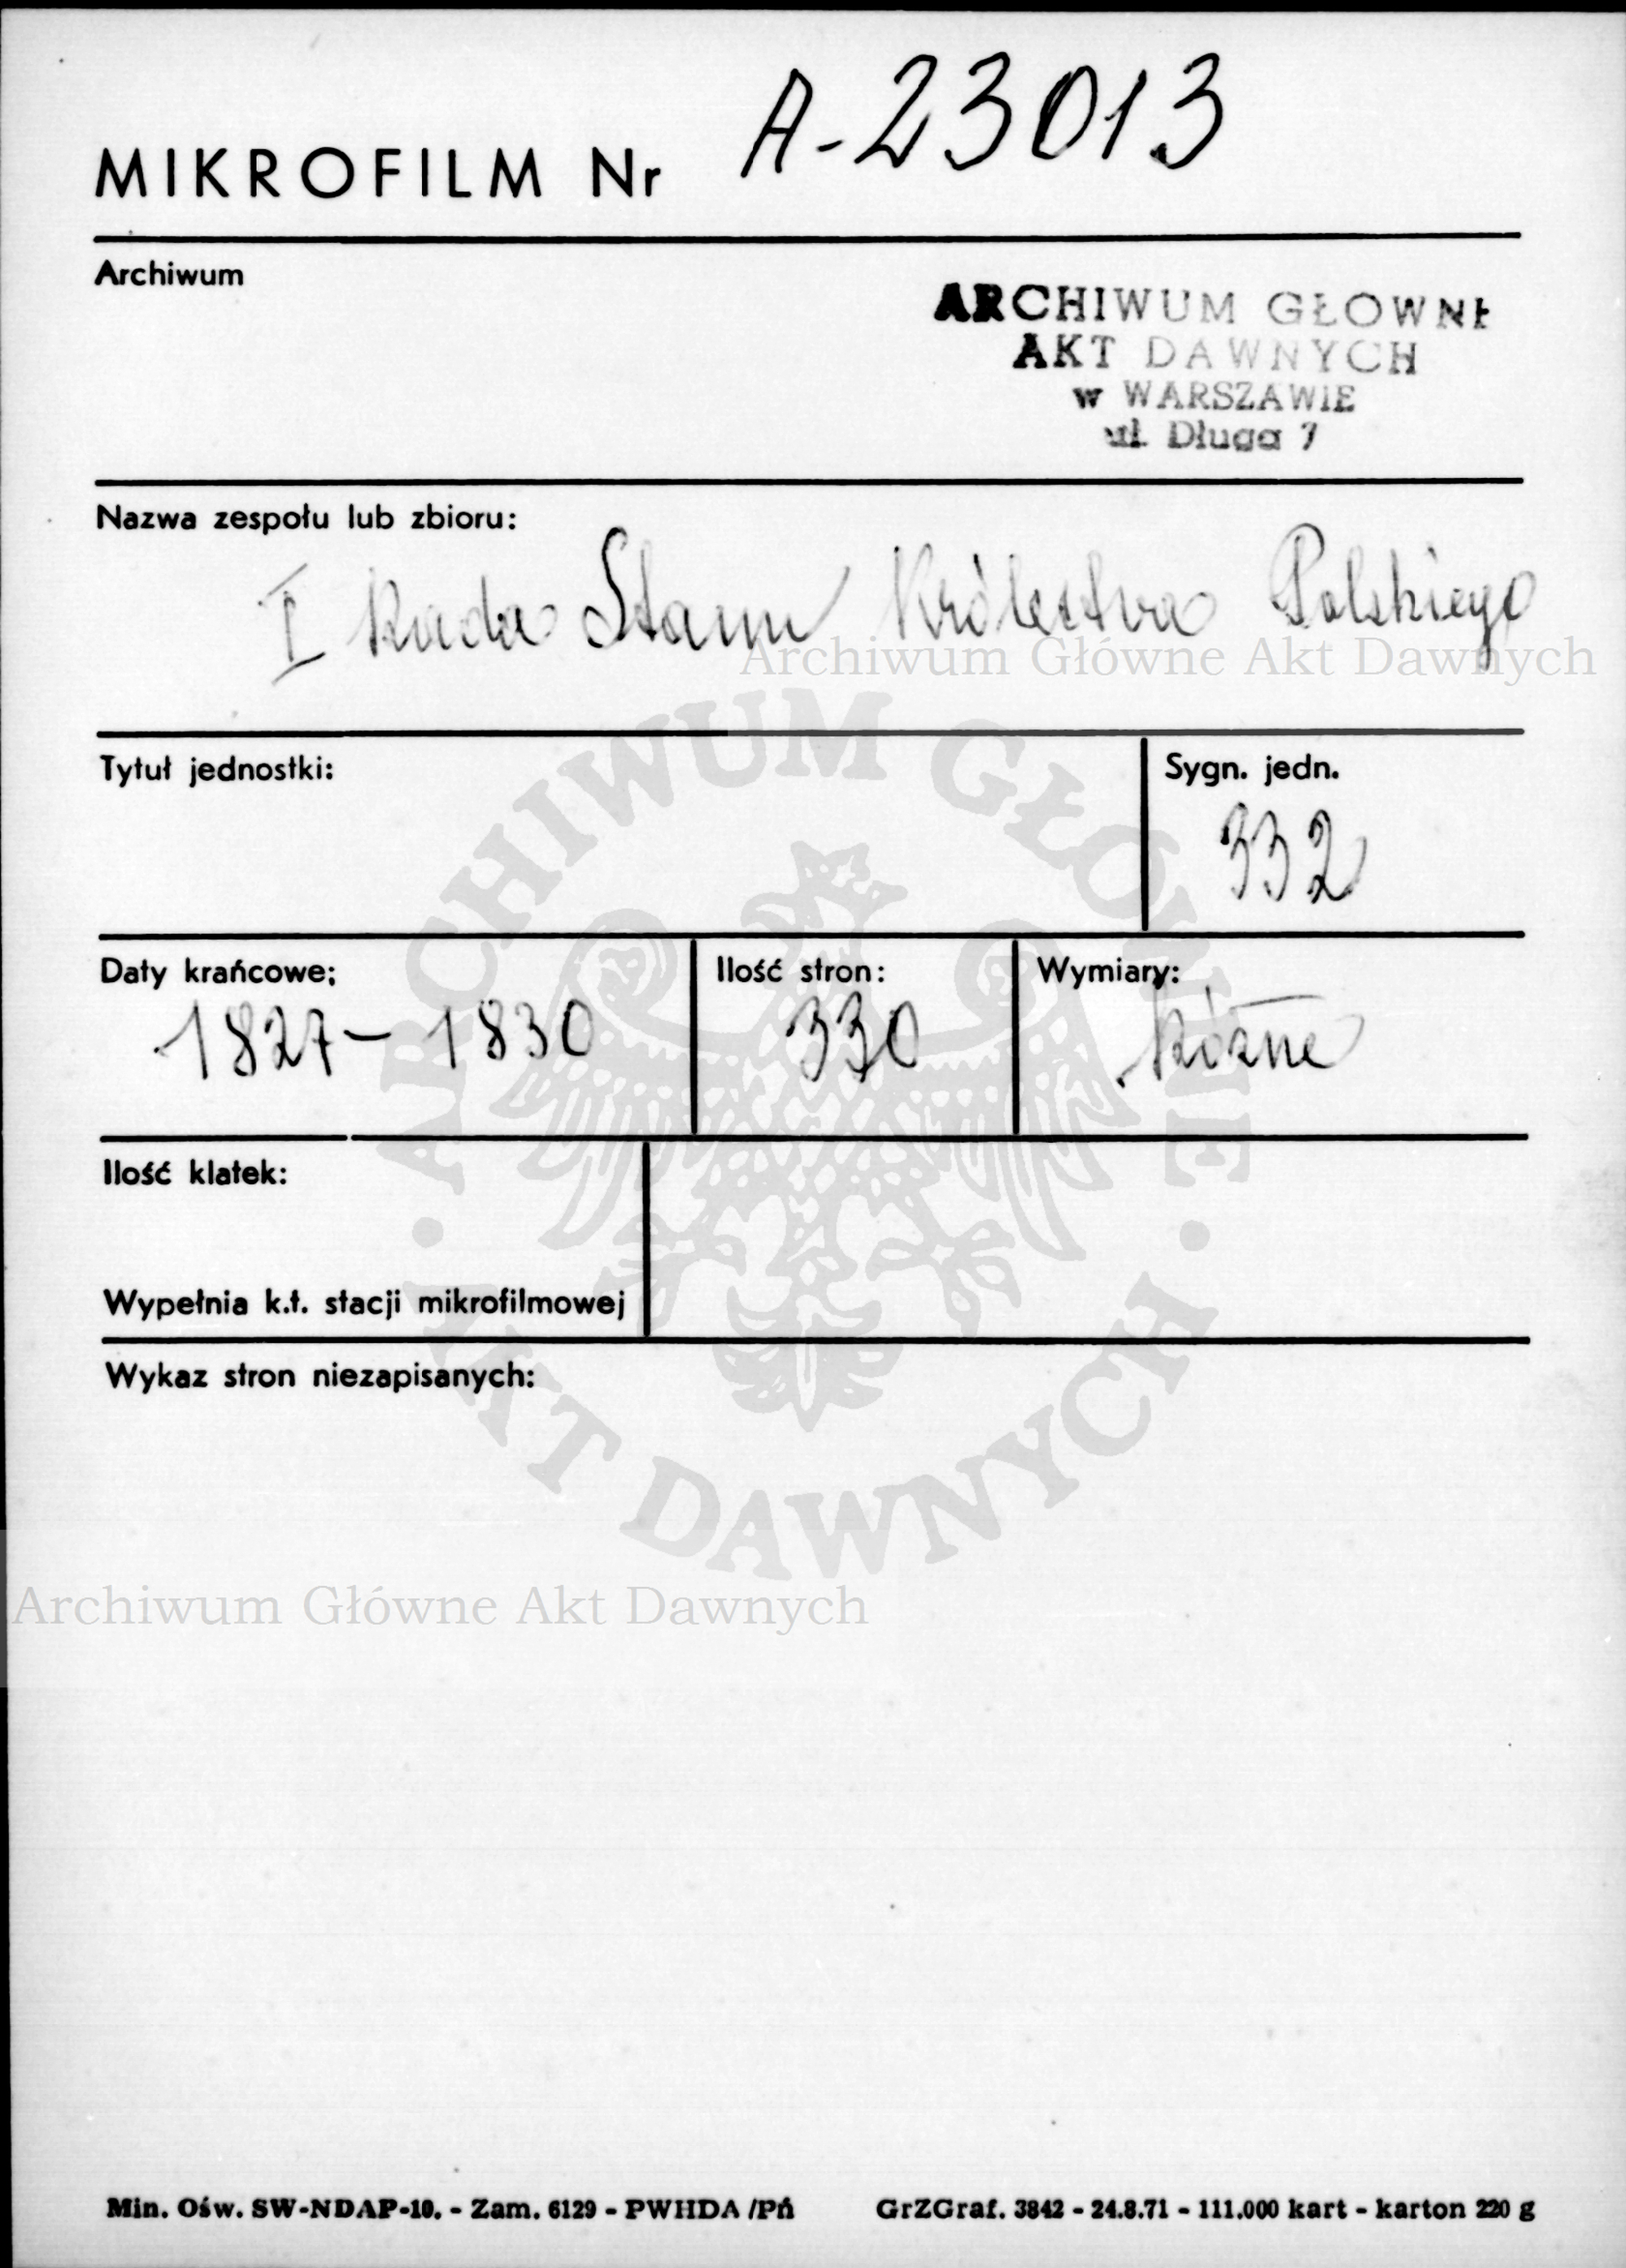 MIKROFILM Nr A-23013
Archiwum
ARCHIWUM GŁOWNE
AKT DAWNYCH
w WARSZAWIE
ul. Długa 7
Nazwa zespołu lub zbioru:
I Rada Stanu Królestwa Polskiego
Archiwum Główne Akt Dawnych
Tytuł jednostki:
Sygn. jedn.
332
Daty krańcowe;
1827-1830
Ilość stron:
330
Wymiary:
Różne
ARCHIWUM GŁÓWNE
· AKT DAWNYCH ·
Ilość klatek:
Wypełnia k.t. stacji mikrofilmowej
Wykaz stron niezapisanych:
Archiwum Główne Akt Dawnych
Min. Ośw. SW-NDAP-10. - Zam. 6129 - PWHDA /Pń
GrZGraf. 3842 - 24.8.71 - 111.000 kart - karton 220 g